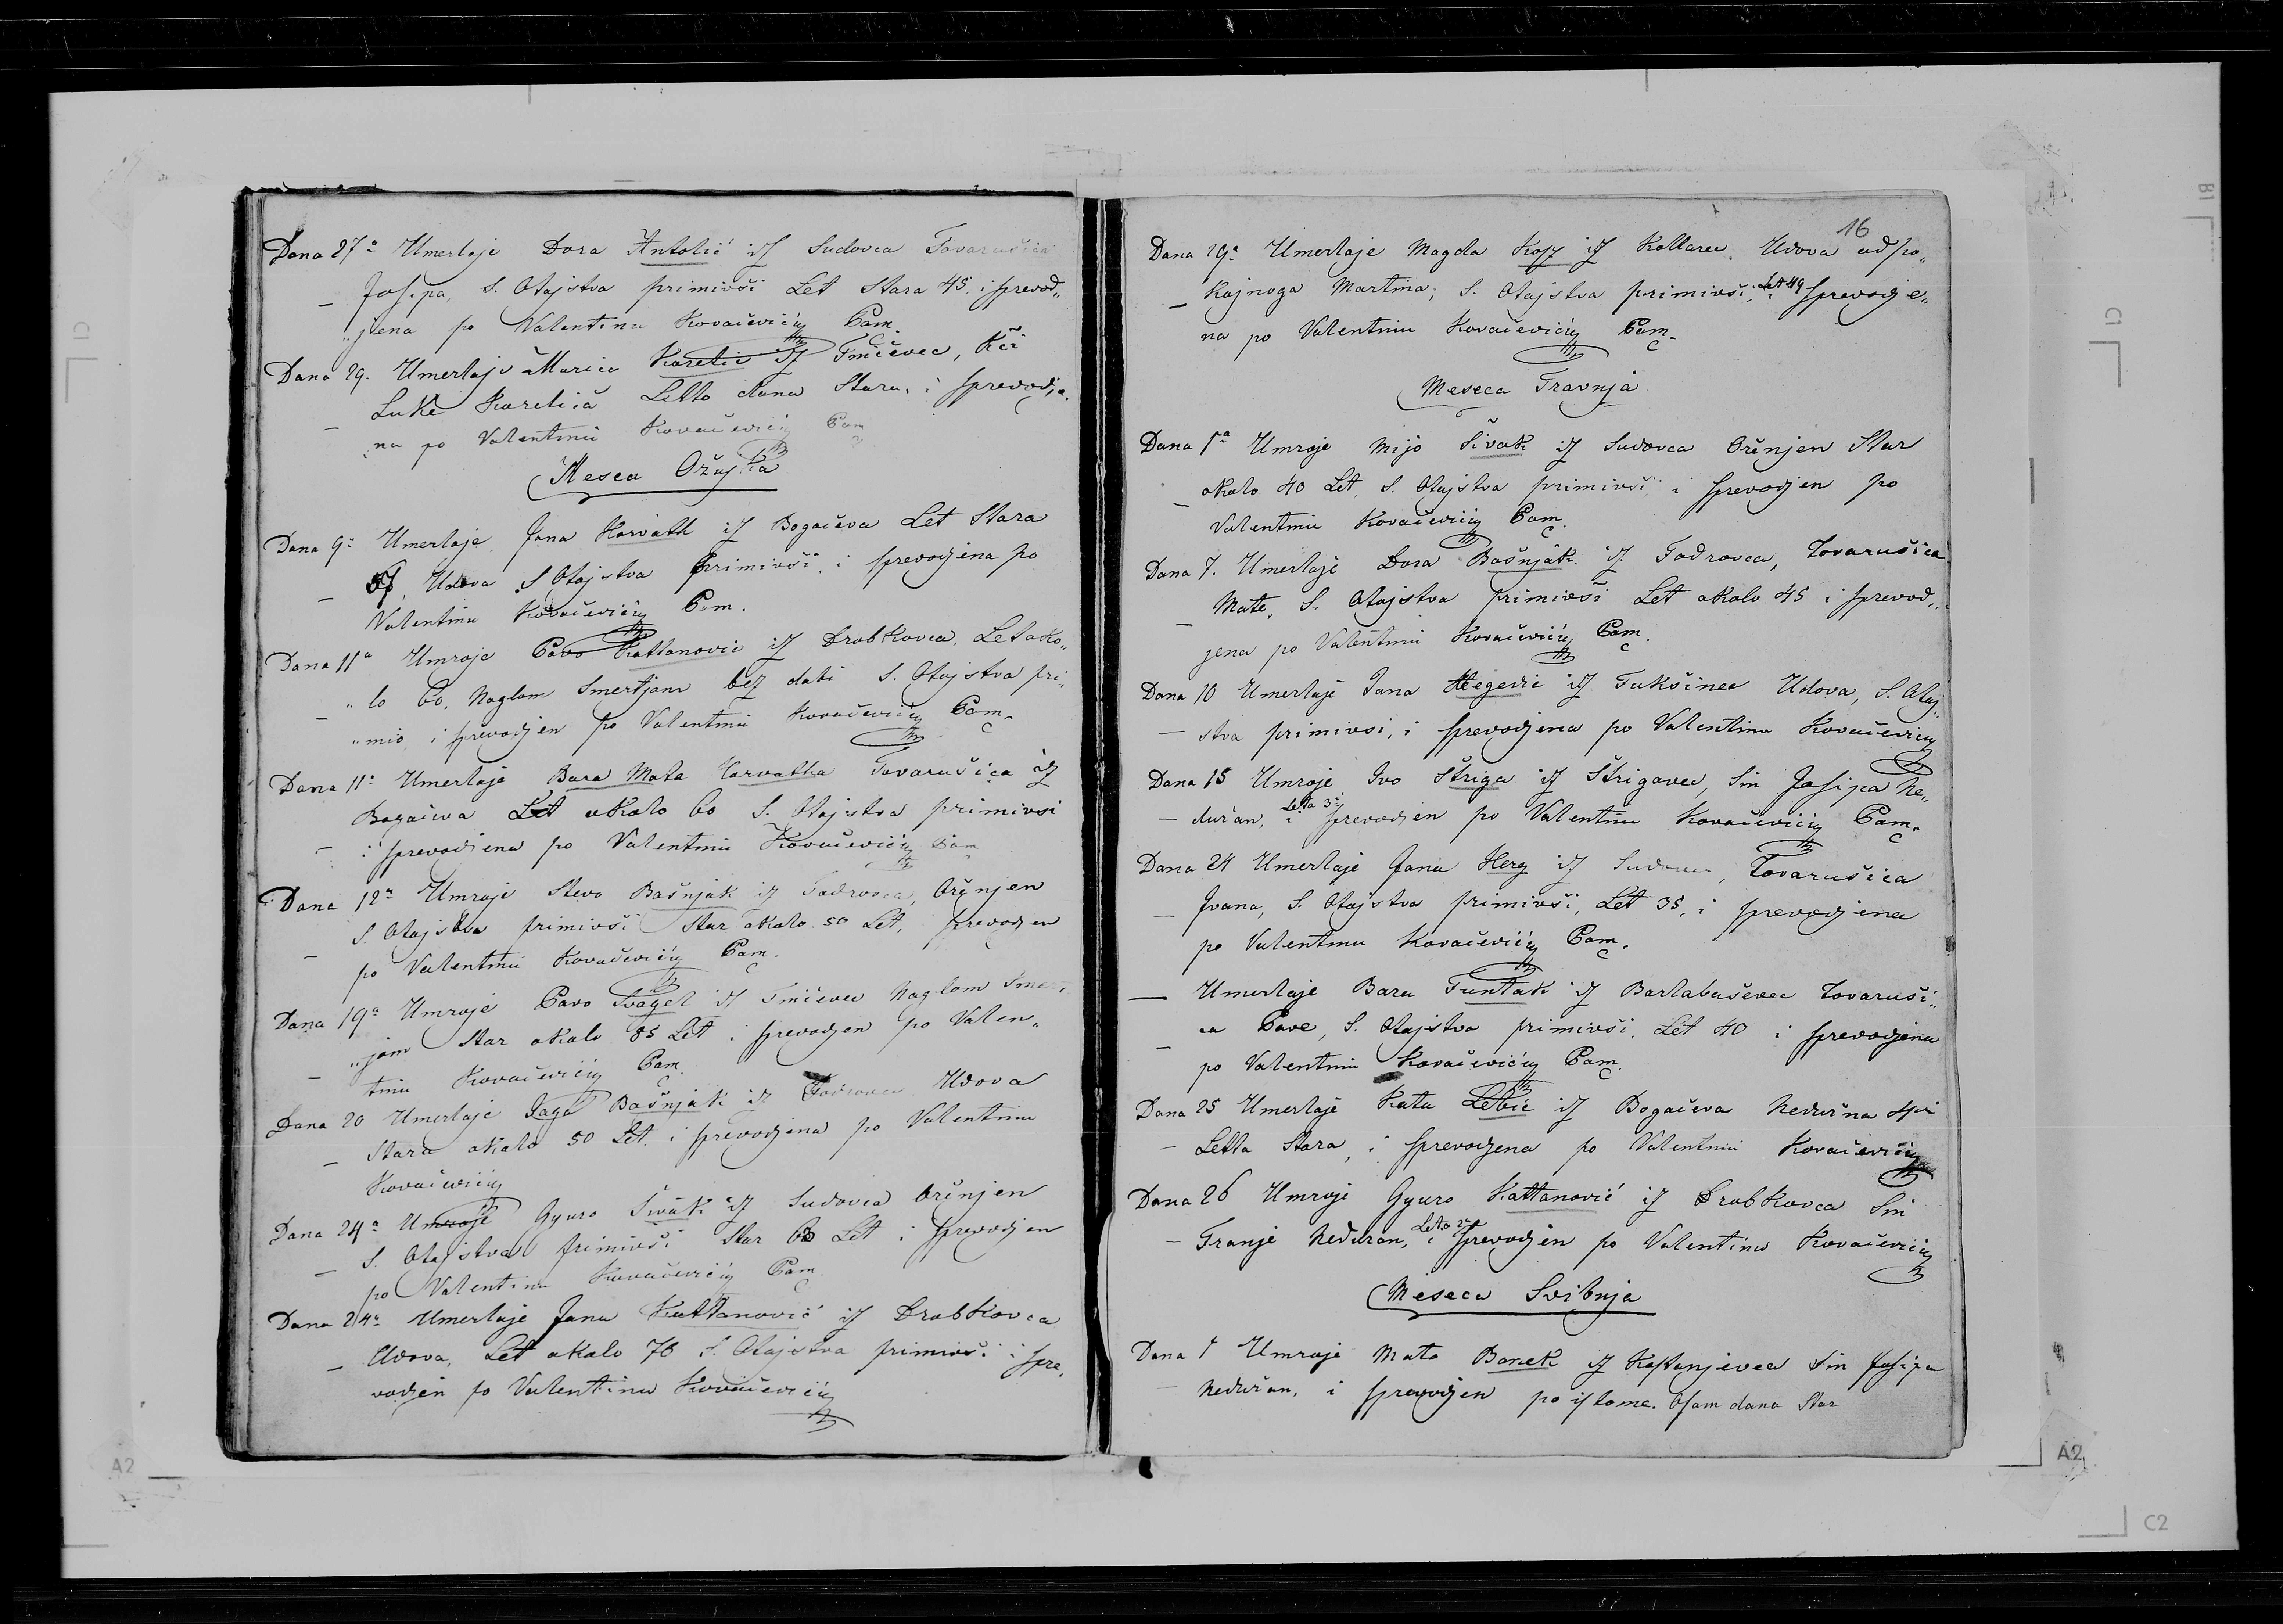 Dana 27a Umerlaje Dora Antolić iz Sudovca Tovarušica
Josipa, S. Otajstva primivši Let Stara 45. i sprevod„
„jena po Valentinu Kovačeviću Cam.
Dana 29. Umerlaje Marica Karelić iz Finčevec, kći
Luke Karelića Letto dana Stara, i sprevodje„
na po Valentinu Kovačeviću Cam
Mesca Ožujka
Dana 9a Umerlaje Jana Horvath iz Bogačeva Let Stara
57, Udova S. Otajstva primivši, i sprevodjena po
Valentinu Kovačeviću Cam.
Dana 11a Umroje Pavo Kattanović iz Drobkovca, Let oko„
„lo 60, Naglom Smertjom bez dati S. Otajstva pri„
„mio i sprevodjen po Valentinu Kovačeviću Cam.
Dana 11a Umerlaje Bara Mata Horvatha Tovarušica iz
Bogačeva Let okolo 60 S. Otajstva primivši
i sprevodjena po Valentinu Kovačeviću Cam
Dana 12a Umroje Stevo Bašnjak iz Fodrovca, Oženjen
S. Otajstva primivši Star okolo 50 Let, sprevodjen
po Valentinu Kovačeviću Cam.
Dana 19a Umroje Pavo Švagel iz Finčevec Naglom Smer„
„jom Star okolo 85 Let i sprevodjen po Valen„
tinu Kovačeviću Cam.
Dana 20 Umerlaje Jaga Bašnjak iz Fodrovca Udova
Stara okolo 50 Let. i sprevodjena po Valentinu
Kovačeviću
Dana 24a Umroje Gyuro Sivak iz Sudovca Oženjen
S. Otajstva primivši Star 60 Let i sprevodjen
po Valentinu Kovačeviću Cam
Dana 24a Umerlaje Jana Kattanović iz Drobkovca
Udova, Let okolo 76 S. Otajstva primivši i spre„
vodjen po Valentinu Kovačeviću
16
Dana 29a Umerlaje Magda Kosz iz Kollarec, Udova od po„
kojnoga Martina, S. Otajstva primivši, Let 49 i sprevodje„
na po Valentinu Kovačeviću Cam.
Meseca Travnja
Dana 1a Umroje Mijo Sivak iz Sudovca Oženjen Star
okolo 40 Let, S. Otajstva primivši, i sprevodjen po
Valentinu Kovačeviću Cam.
Dana 7. Umerlaje Dora Bošnjak iz Fodrovca, Tovarušica
Mate, S. Otajstva primivši Let okolo 45 i sprevod„
jena po Valentinu Kovačeviću Cam.
Dana 10 Umerlaje Jana Hegedić iz Fukšinec Udova, S. Otaj„
stva primivsi, i sprevodjena po Valentinu Kovačeviću
Dana 15 Umroje Ivo Striga iz Štrigovec, Sin Josipa Ne„
dužan, Letta 3 i sprevodjen po Valentinu Kovačeviću Cam.
Dana 24 Umerlaje Jana Herg iz Sudovca, Tovarušica
Ivana, S. Otajstva primivši, Let 35, i sprevodjena
po Valentinu Kovačeviću Cam.
— Umerlaje Bara Funtak iz Barlabaševec Tovaruši„
ca Pave, S. Otajstva primivši, Let 40 i sprevodjena
po Valentinu Kovačeviću Cam.
Dana 25 Umerlaje Kata Lebić iz Bogačeva Nedužna
Letta Stara, i sprevodjena po Valentinu Kovačeviću
Dana 26 Umroje Gyuro Kattanović iz Drobkovca Sin
Franje Nedužan, Leto 2 i sprevodjen po Valentinu Kovačeviću
Meseca Svibnja
Dana 1 Umroje Mato Banek iz Kostanjevca Sin Josipa
Nedužan, i sprevodjen po istome. Osam dana Star